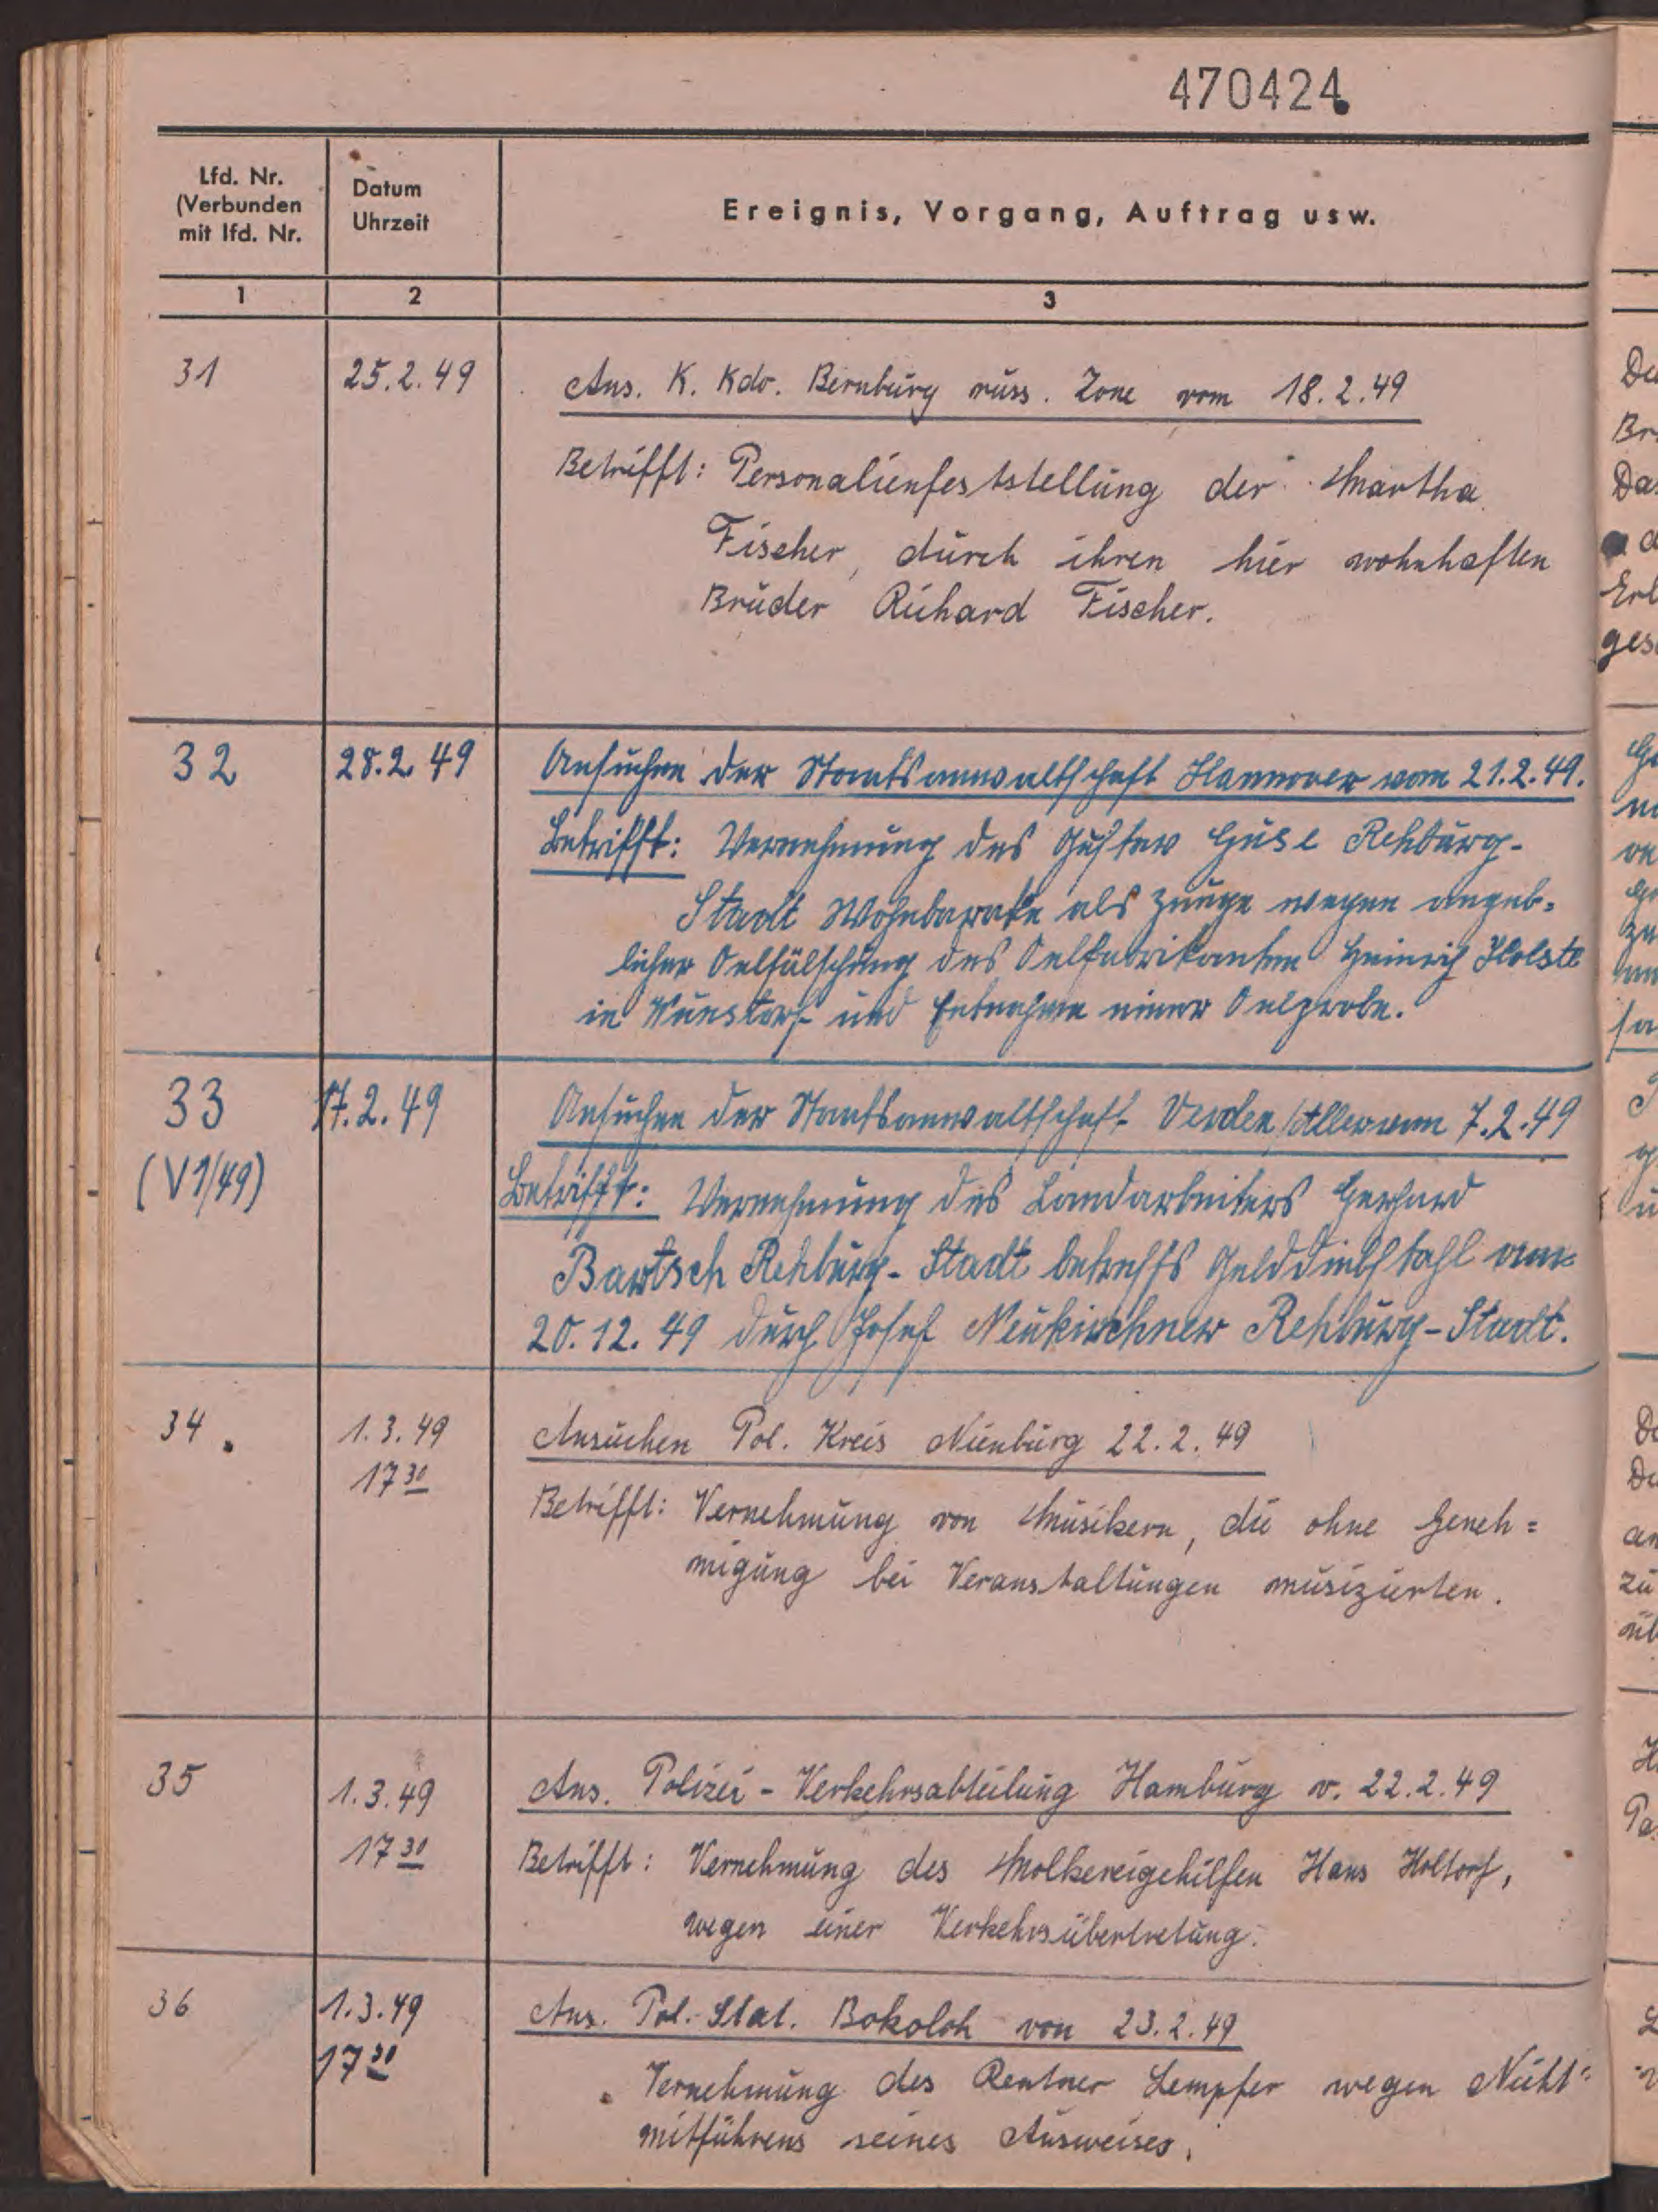 470424
Lfd. Nr.
(Verbunden
mit lfd. Nr.
Datum
Uhrzeit
Ereignis, Vorgang, Auftrag usw.
1
2
3
31
25.2.49
Ans. K. Kdo. Bernburg russ. Zone vom 18.2.49
Betrifft: Personalienfeststellung der Martha
Fischer, durch ihren hier wohnhaften
Bruder Richard Fischer.
32
28.2.49
Ansuchen der Staatsanwaltschaft Hannover vom 21.2.49.
Betrifft: Vernehmung des Gustav Guse Rehburg-
Stadt Wohnbarake als Zeuge wegen angeb-
licher Oelfälschung des Oelfabrikanten Heinrich Holste
in Wunstorf und Entnahme einer Oelprobe.
33
(V1/49)
17.2.49
Ansuchen der Staatsanwaltschaft Verden/Aller vom 7.2.49
Betrifft: Vernehmung des Landarbeiters Gerhard
Bartsch Rehburg-Stadt betreffs Gelddiebstahl am
20.12.49 durch Josef Neukirchner Rehburg-Stadt.
34.
1.3.49
17 30
Ansuchen Pol. Kreis Nienburg 22.2.49
Betrifft: Vernehmung von Musikern, die ohne Geneh=
migung bei Veranstaltungen musizierten.
35
1.3.49
17 30
Ans. Polizei-Verkehrsabteilung Hamburg v. 22.2.49
Betrifft: Vernehmung des Molkereigehilfen Hans Holtorf,
wegen einer Verkehrsübertretung.
36
1.3.49
17 30
Ans. Pol.-Stat. Bokoloh von 23.2.49
Vernehmung des Rentner Lempfer wegen Nicht=
mitführens seines Ausweises.